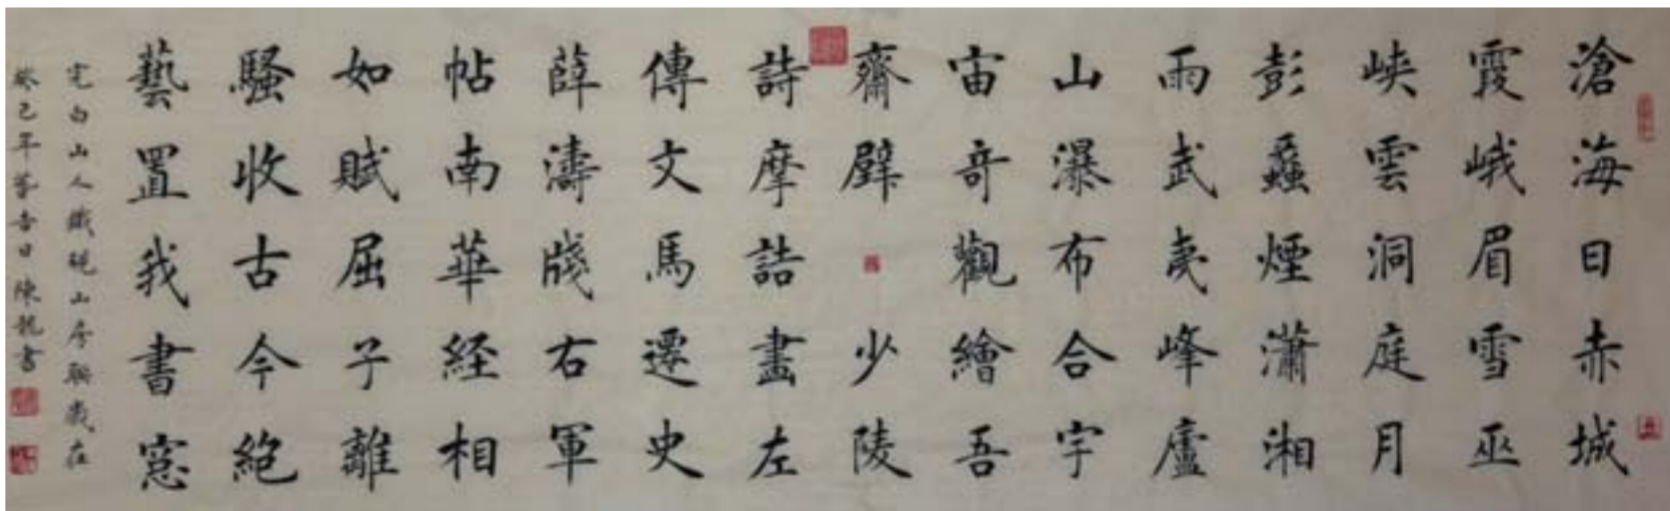 滄海日赤城
霞峨眉雪巫
峽雲洞庭月
彭蠡煙瀟湘
雨武夷峰廬
山瀑布合宇
宙奇觀繪吾
齋壁少陵
詩摩詰畫左
傳文馬遷史
薛濤牋右軍
帖南華经相
如賦屈子離
騷收古今絕
藝置我書窓
完白山人鐵硯山房聯歲在
癸巳年吉日陳龍書